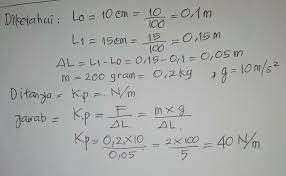 Diketahui : Lo = 10 cm = 10/100 = 0,1 m
L1 = 15 cm = 15/100 = 0,15 m.
ΔL = L1 - Lo = 0,15 - 0,1 = 0,05 m
m = 200 gram = 0,2 kg , g = 10 m/s²
Ditanya = Kp = ... N/m
Jawab = Kp = F/ΔL = m x g/ΔL
Kp = 0,2 x 10/0,05 = 2 x 100/5 = 40 N/m